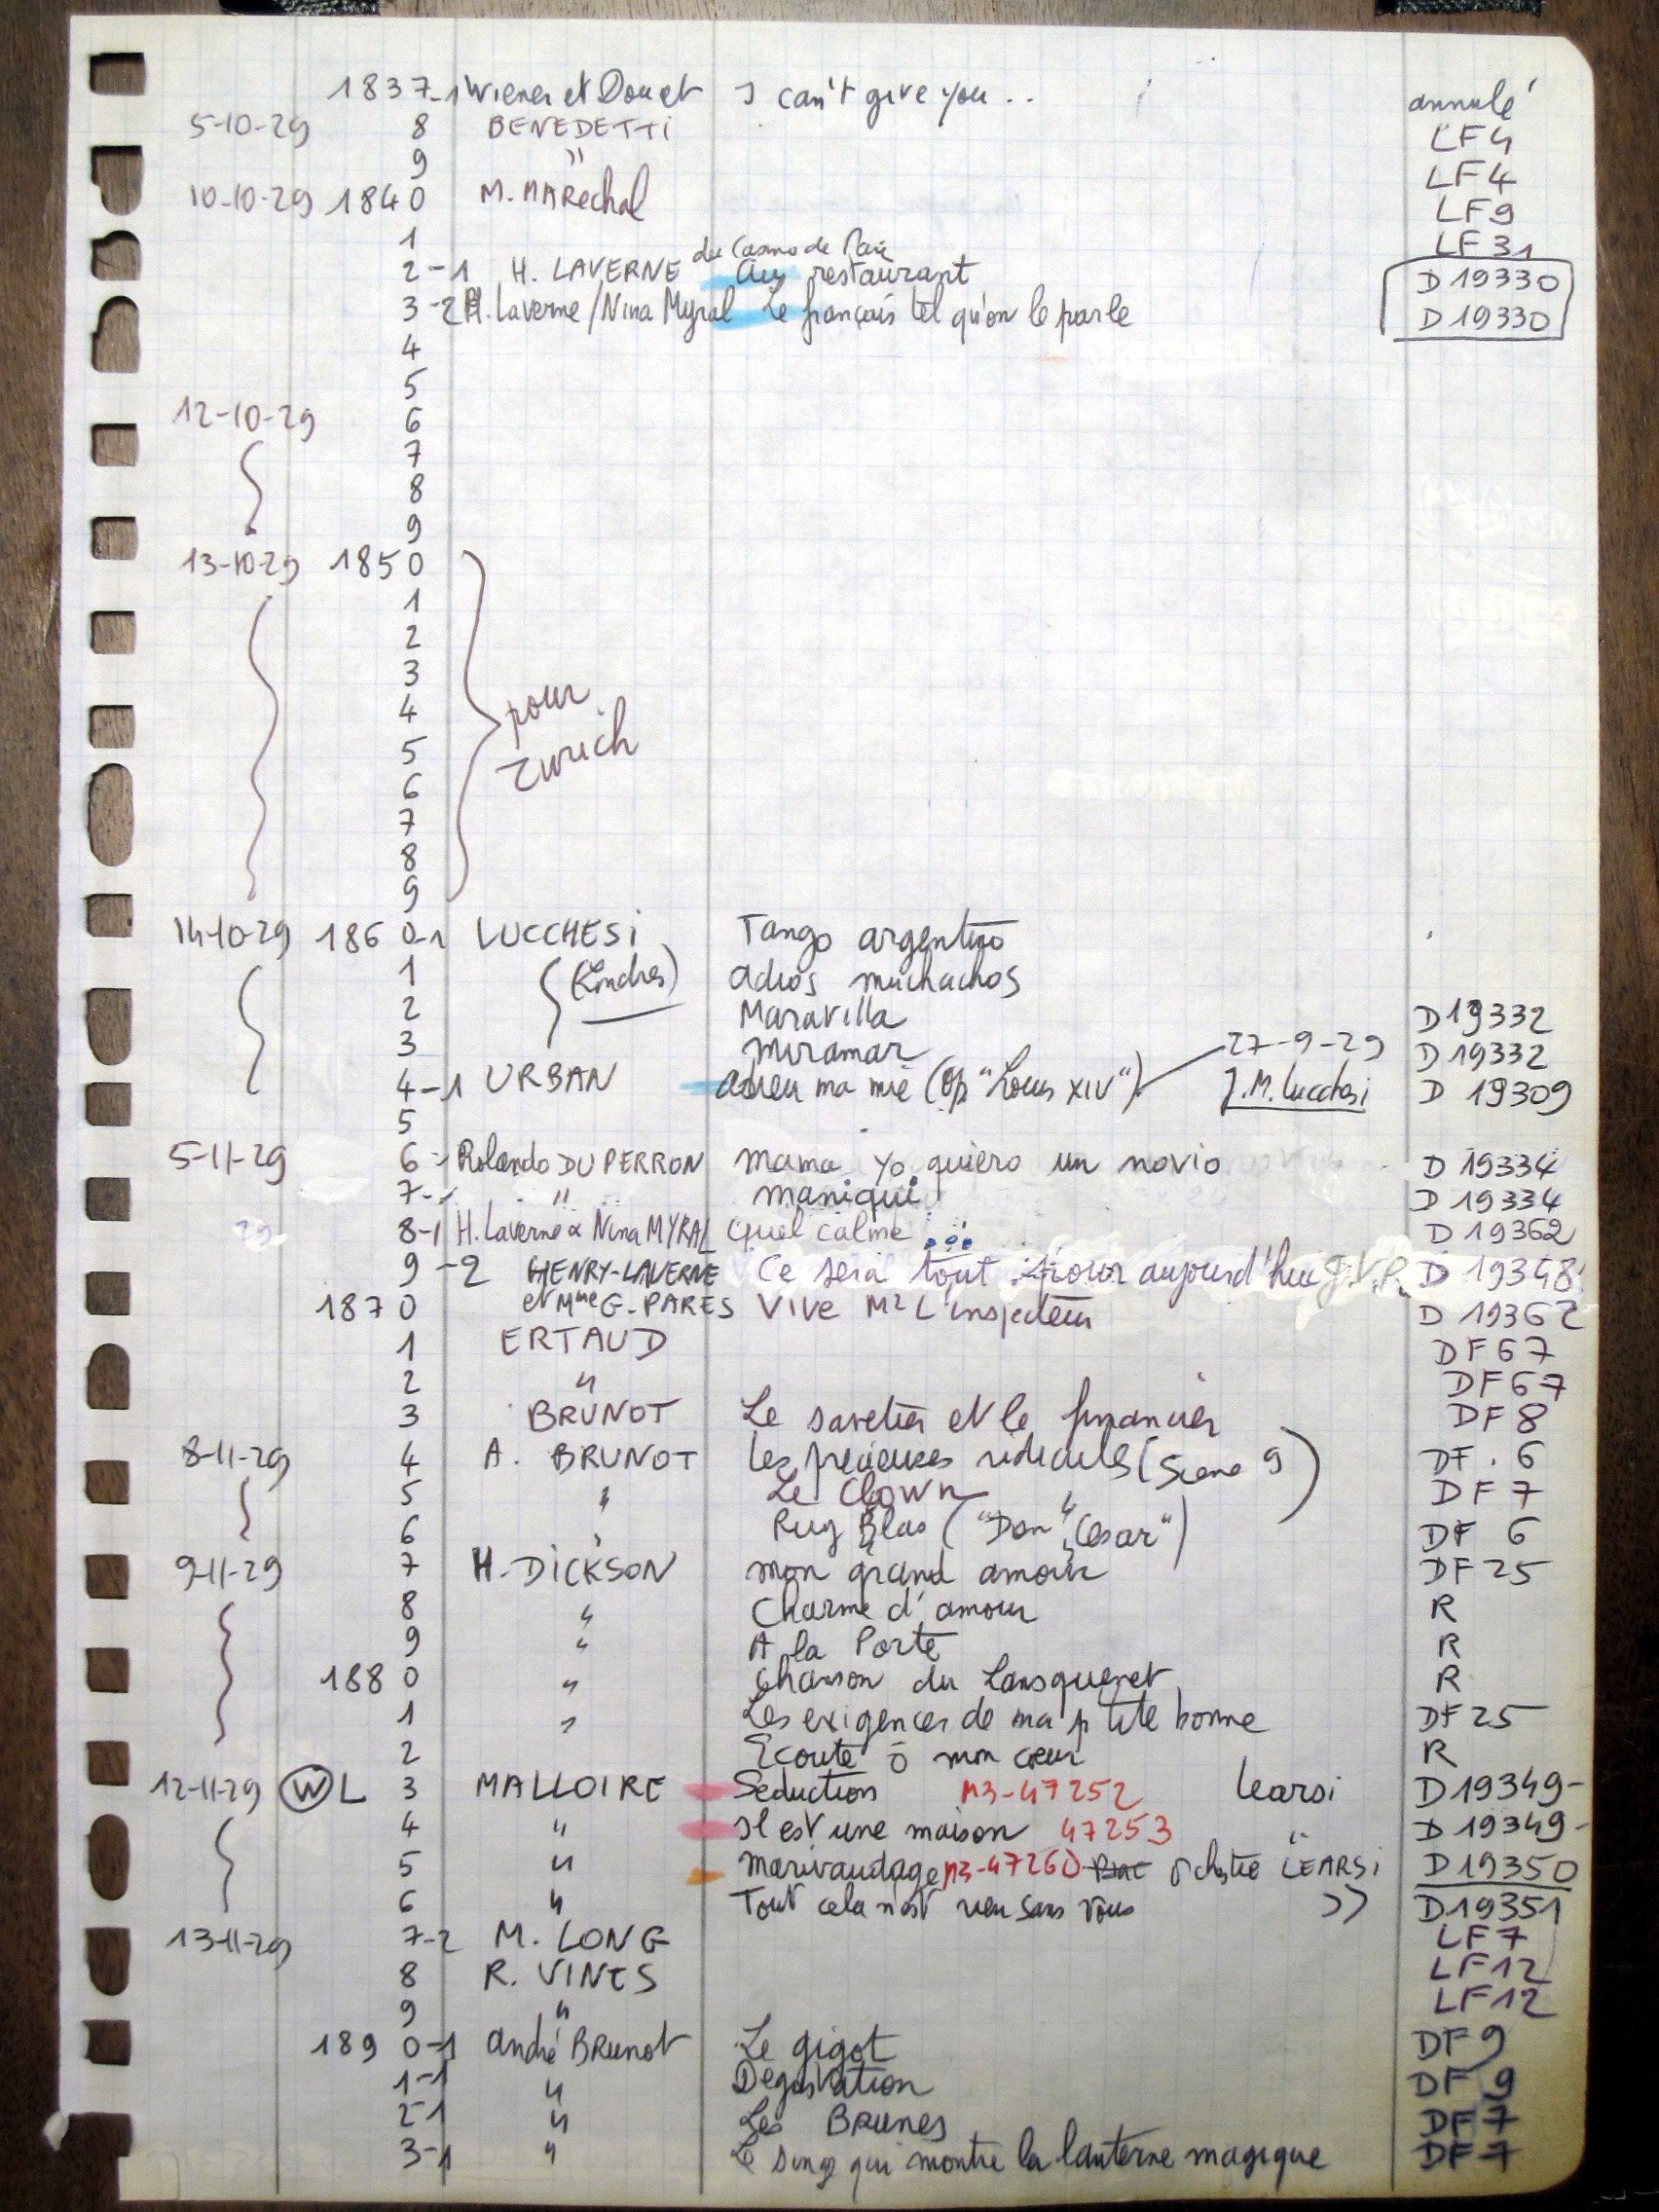 1837-1 Wiener et Doucet I can't give you .. annulé
5-10-29 8 BENEDETTI LF4
9 " LF4
10-10-29 1840 M. MARechal LF9
1 LF31
du Casino de Paris
2-1 H. LAVERNE Au restaurant D 19330
3-2 H. Laverne/Nina Myral Le français tel qu'on le parle D 19330
4
5
12-10-29 6
7
8
9
13-10-29 1850
1
2
3
4 pour
5 Zurich
6
7
8
9
14-10-29 186 0-1 LUCCHESI Tango argentino
1 (Londres) adios muchachos
2 Maravilla D 19332
3 Miramar 27-9-29 D 19332
4-1 URBAN adieu ma mie (Op "Louis XIV") J.M. Lucchesi D 19309
5
5-11-29 6-1 Rolando DUPERRON mama yo quiero un novio D 19334
7-1 " maniqui D 19334
29 8-1 H. Laverne & Nina MYRAL Quel calme ... D 19362
9-2 HENRY-LAVERNE Ce sera tout pour aujourd'hui J.V.P. D 19348
187 0 et Mme G. PARES Vive Mr L'inspecteur D 19362
1 ERTAUD DF67
2 " DF67
3 BRUNOT Le savetier et le financier DF8
8-11-29 4 A. BRUNOT Les précieuses ridicules (Scène 9) DF.6
5 " Le Clown " DF7
6 " Ruy Blas ("Don César") DF 6
9-11-29 7 H. DICKSON mon grand amour DF25
8 " Charme d'amour R
9 " A la Porte R
188 0 " Chanson du Lansquenet R
1 " Les exigences de ma p'tite bonne DF25
2 Ecoute ô mon cœur R
12-11-29 W L 3 MALLOIRE Séduction M3-47252 Learsi D 19349-
4 " Il est une maison 47253 " D 19349-
5 " Marivaudage M3-47260 orchestre LEARSI D 19350
6 " Tout cela n'est rien sans vous " D 19351
13-11-29 7-2 M. LONG LF7
8 R. VINES LF12
9 " LF12
189 0-1 André BRunot Le gigot DF9
1-1 " Dégustation DF9
2-1 " Les BRunes DF7
3-1 " Le singe qui montre la lanterne magique DF7